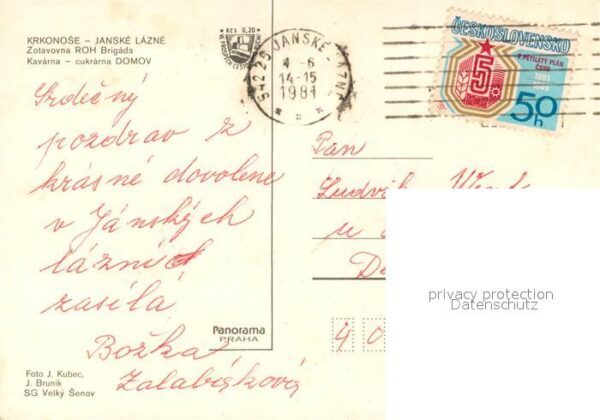 KRKONOŠE – JANSKÉ LÁZNĚ
Zotavovna ROH Brigáda
Kavárna – cukrárna DOMOV
Srdečný
pozdrav z
krásné dovolené
v Jánských
lázních
zasílá
Božka
Zalabísková
Panorama
PRAHA
Foto J. Kubec,
J. Bruník
SG Velký Šenov
Kčs 0,20
542 25 JANSKÉ LÁZNĚ
4 -6
14-15
1981
ČESKOSLOVENSKO
7. PĚTILETÝ PLÁN
ČSSR
1981
1985
5
50h
Pan
Ludvík
u
40
privacy protection
Datenschutz